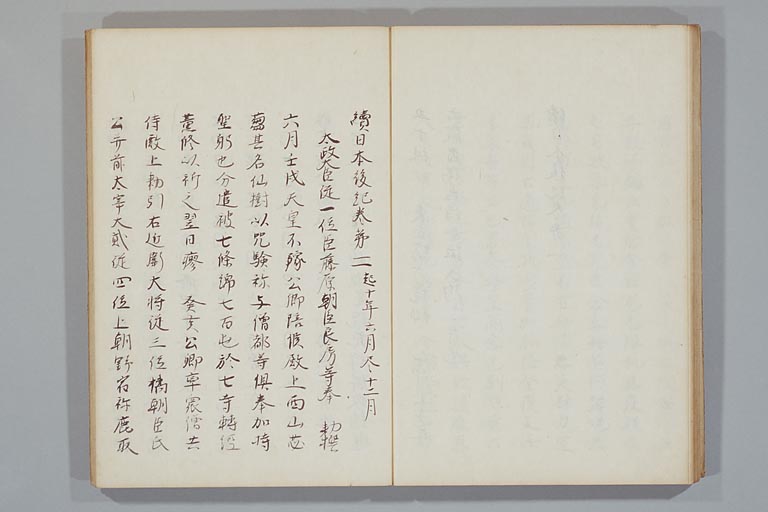 續日本後紀卷第二 起十年六月尽十二月
太政大臣從一位臣藤原朝臣良房等奉 勅撰
六月壬戌天皇不豫公卿陪候殿上西山
其名仙樹以咒驗祢与僧都等俱奉加持
聖躬也分遣破七條綿七百屯於七寺轉經
薰修以祈之翌日瘳 癸亥公卿率衆僧共
侍殿上勅引右近衛大将從三位橘朝臣氏
公于前太宰大貳從四位上朝野宿祢鹿取